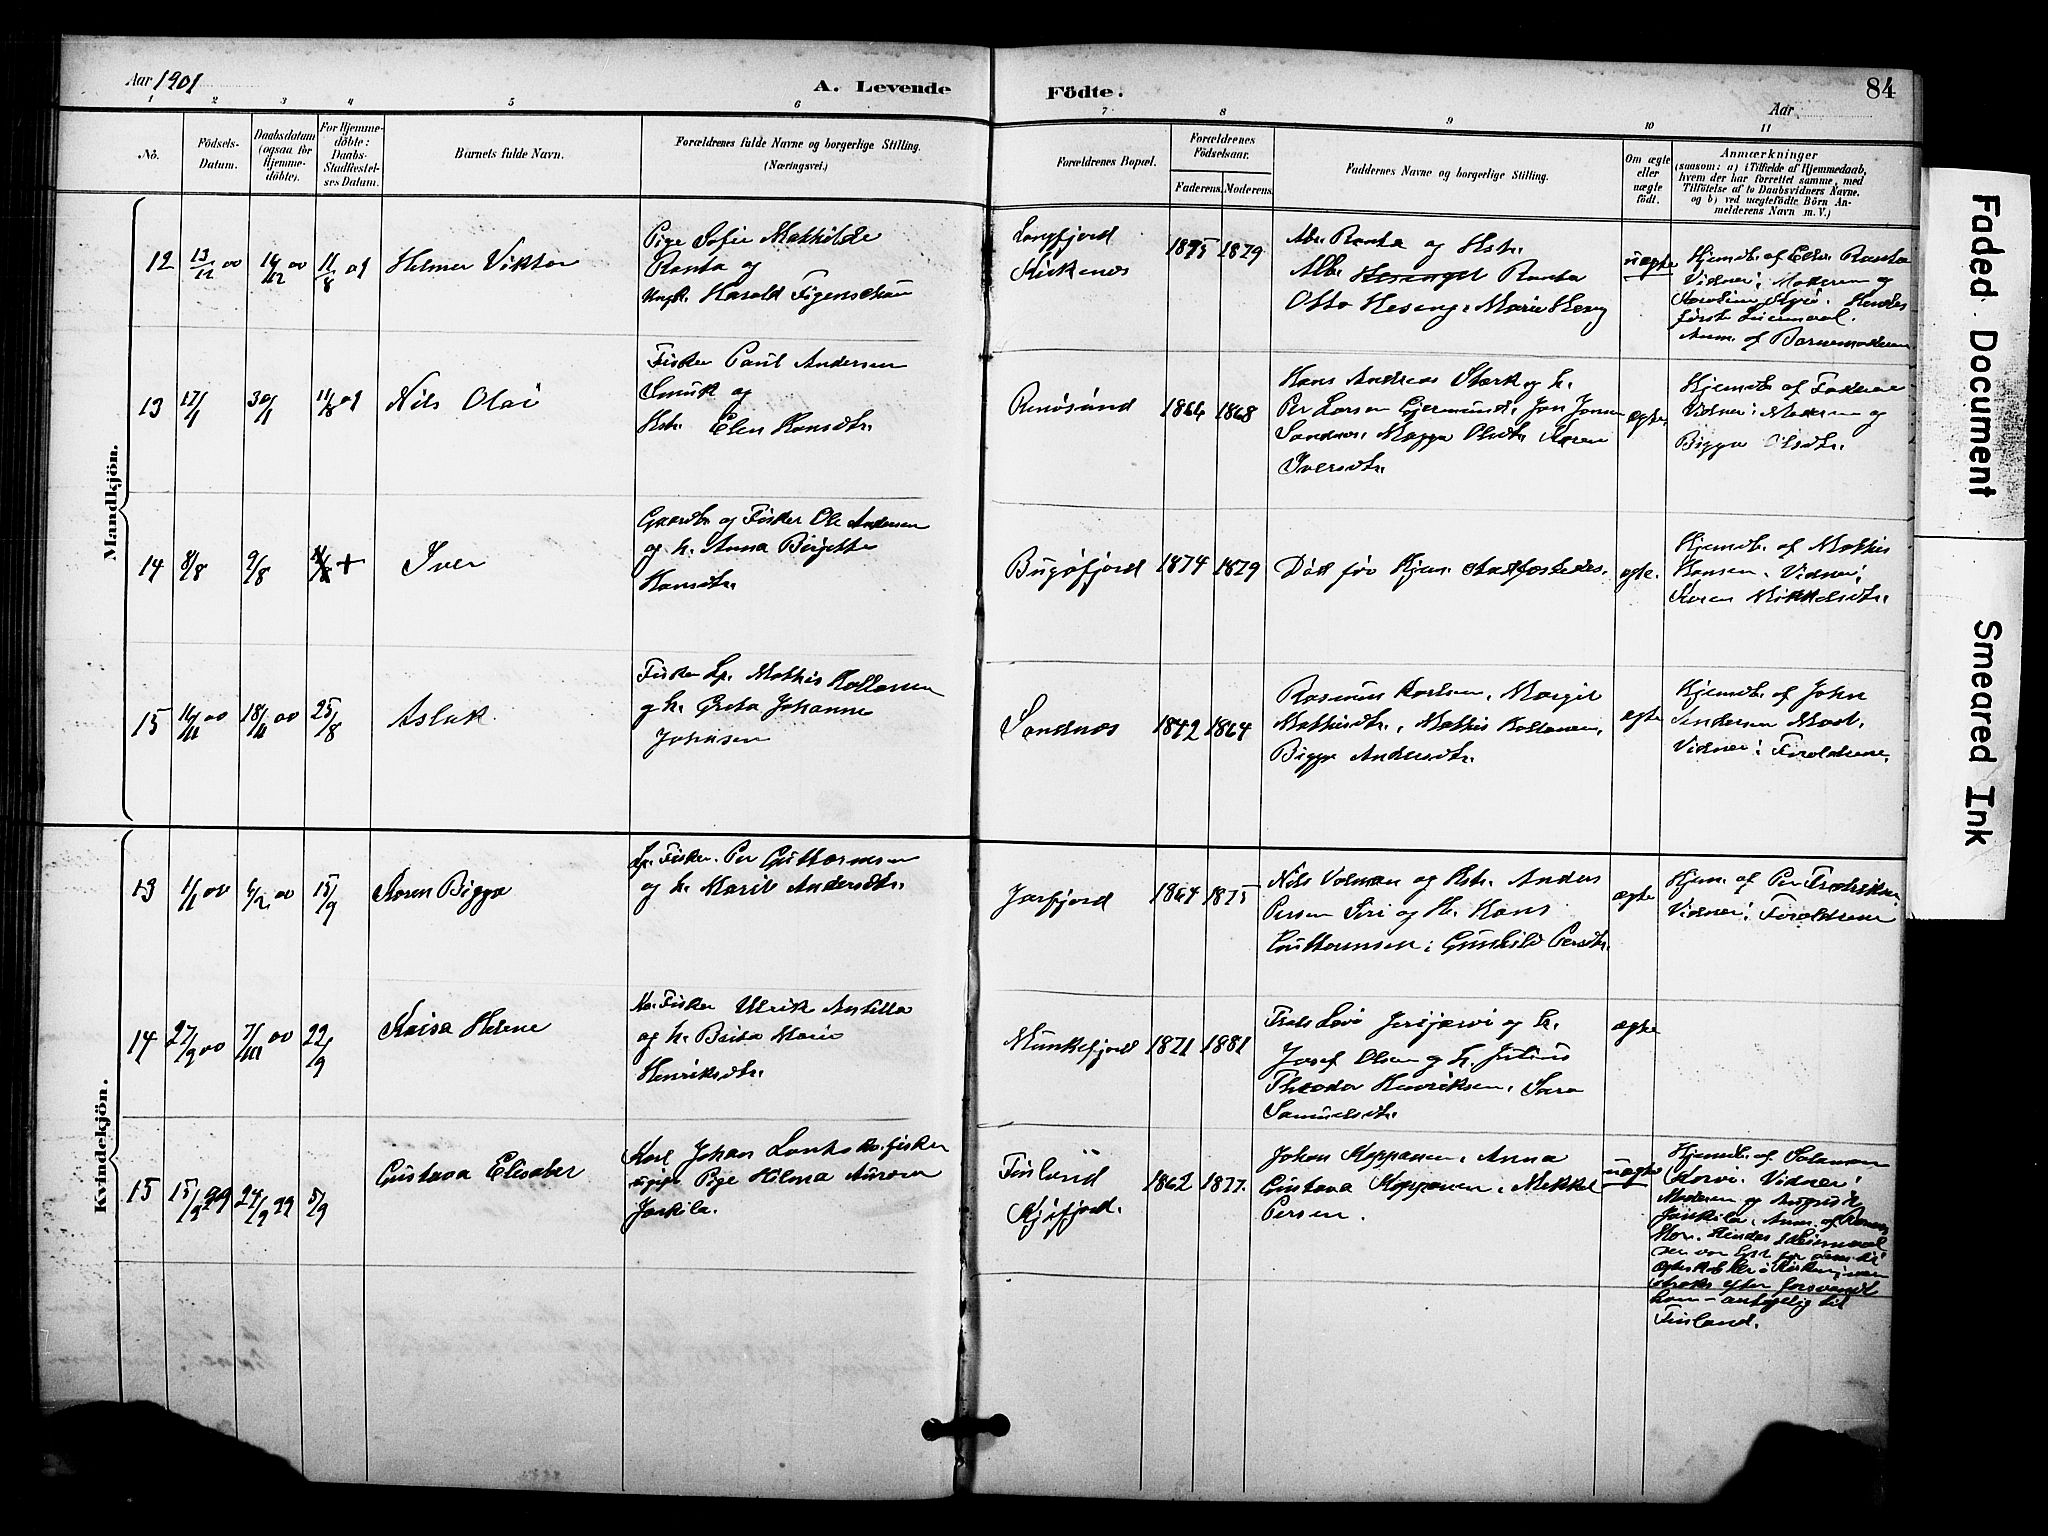 Aar 1901
A. Levende
Födte.
84
Aar
1 2 3 4 5 6 7 8 9 10 11
No.
Födsels-
Datum.
Daabsdatum
(ogsaa for
Hjemme-
döbte).
For Hjemme-
döbte:
Daabs-
Stadfæstel-
ses Datum.
Barnets fulde Navn.
Forældrenes fulde Navne og borgerlige Stilling.
(Næringsvei.)
Forældrenes Bopæl.
Forældrenes
Födselsaar.
Faderens. Moderens.
Faddernes Navne og borgerlige Stilling.
Om ægte
eller
uægte
födt.
Anmærkninger
(saasom: a) i Tilfælde af Hjemmedaab,
hvem der har forrettet samme, med
Tilföielse af to Daabsvidners Navne.
og b) ved uægtefödte Börn An-
melderens Navn m. V.)
Mandkjön.
12 13/12 00 16/12 00 11/8 01 Helmer Viktor
Pige Sofie Mathilde
Ranta og
Ungk. Harald Figenschau
Langfjord
Kirkenes
1875 1879
Alb. Ranta og Hstr.
Alb. Ranta
Otto Heseng, Marie Heseng
uægte
Hjemdb. af Ranta
Vidner: Moderen og
Hendes
første Leiermaal.
Anm. af Barnemoderen
13 17/1 30/1 11/8 01 Nils Olai
Fisker Paul Andersen
Smuk og
Hstr. Elen Hansdtr.
Renøsund
1864 1868
Hans Andreas Stærk og h.
Per Larsen Gjermund, Jon Jonsen
Sandnes, Magga Olsdtr. Karen
Iversdtr.
ægte.
Hjemdb. af Faderen
Vidner: Moderen og
Bigga Olsdtr.
14 8/8 9/8 + Iver
Gaardbr. og Fisker Ole Andersen
og h. Anna Birgitte
Hansdtr.
Bugøfjord
1874 1879
Død før Hjem. stadfæstedes.
ægte.
Hjemdb. af Mathis
Hansen. Vidner:
Karen Mikkelsdtr.
15 16/11 00 18/11 00 25/8 Aslak
Fisker Lp. Mathis Kaltanen
og h. Greta Johanne
Johnsen
Sandnæs
1842 1864
Rasmus Karlsen, Margit
Mathisdtr., Mathis Kaltanen,
Bigga Andersdtr.
ægte
Hjemdb. af John
Vidner: Forældrene.
Kvindekjön.
13 1/1 00 6/2 00 15/9 Karen Bigga
Lp. Fisker Per Guttormsen
og h. Marit Andersdtr.
Jarfjord
1864 1875
Nils Volman og Hstr. Anders
Persen Siri og H. Hans
Guttormsen, Gunhild Persdtr.
ægte
Hjem. af Per Fredriksen,
Vidner: Forældrene
14 27/9 00 7/10 00 22/9 Kaisa Helene
Kv. Fisker Ulrik Anttilla
og h. Brita Marie
Henriksdtr.
Munkefjord
1871 1881
Frets Levi Jerijærvi og h.
Josef Olsen og h. Julius
Theodor Henriksen, Sara
Samuelsdtr.
ægte
15 15/9 99 24/9 99 5/9 Gustava Elisabet
Karl Johan Lanto kv. fisker
ugift Pige Hilma Aurora
Jaskila.
Finland
Kjøfjord.
1862 1877.
Johan Koppanen, Anna
Gustava Koppanen, Mikkel
Persen.
uægte
Hjemdb. af Salomon
Korvi. Vidner:
Moderen og
Jaskila. Anm. af Barnets
Mor. Hendes Leiermaal
strax efter forsvandt
ham - antagelig til
Finland.
Faded Document
Smeared Ink